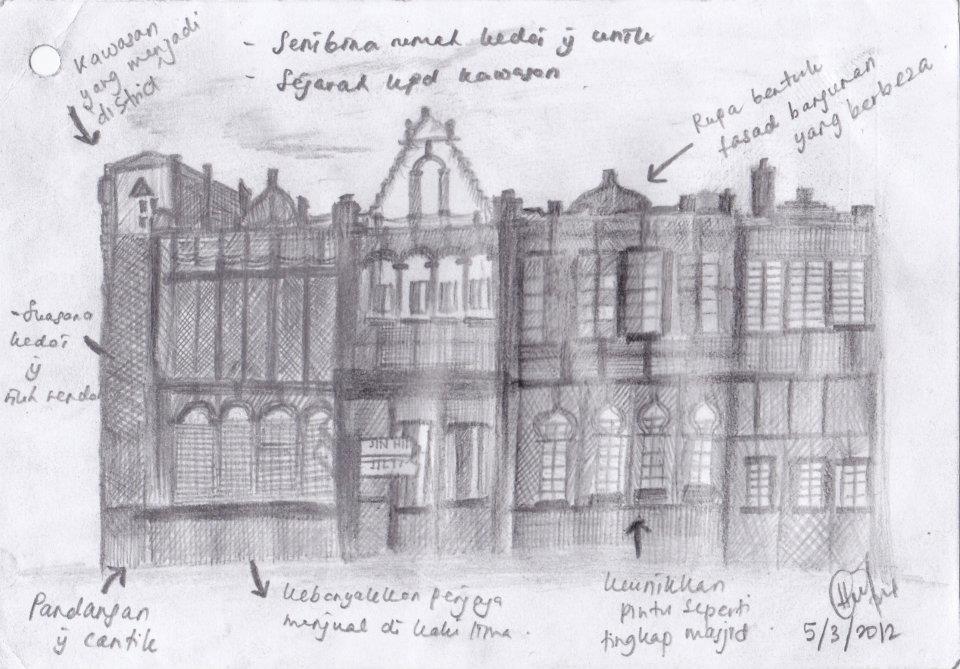 Kawasan
yang menjadi
district
- Senibina rumah kedai ÿ unik
- Sejarah kpd kawasan
Rupa bentuk
fasad bangunan
yang berbeza
- Suasana
kedai
ÿ
JLN HI
Pandangan
ÿ cantik
kebanyakkan penjaja
menjual di kaki lima.
keunikkan
pintu seperti
tingkap masjid.
5/3/2012